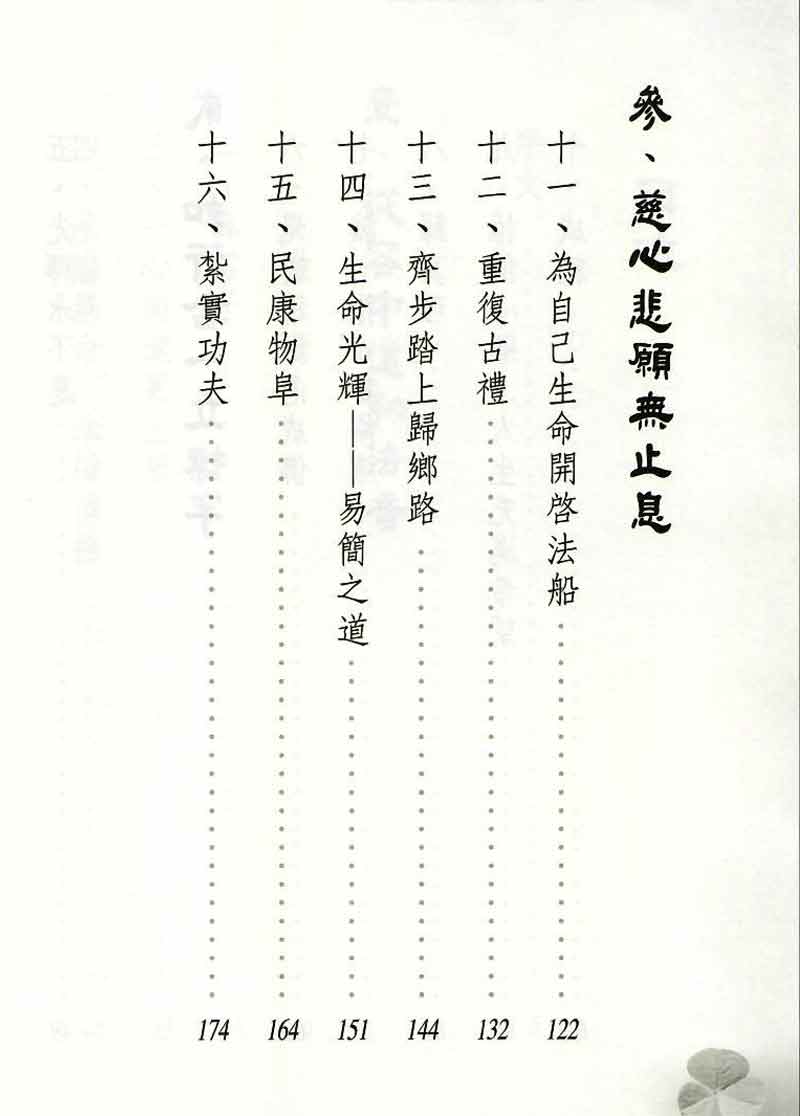 參、慈心悲願無止息
十一、為自己生命開啓法船……122
十二、重復古禮……132
十三、齊步踏上歸鄉路……144
十四、生命光輝——易簡之道……151
十五、民康物阜……164
十六、紮實功夫……174